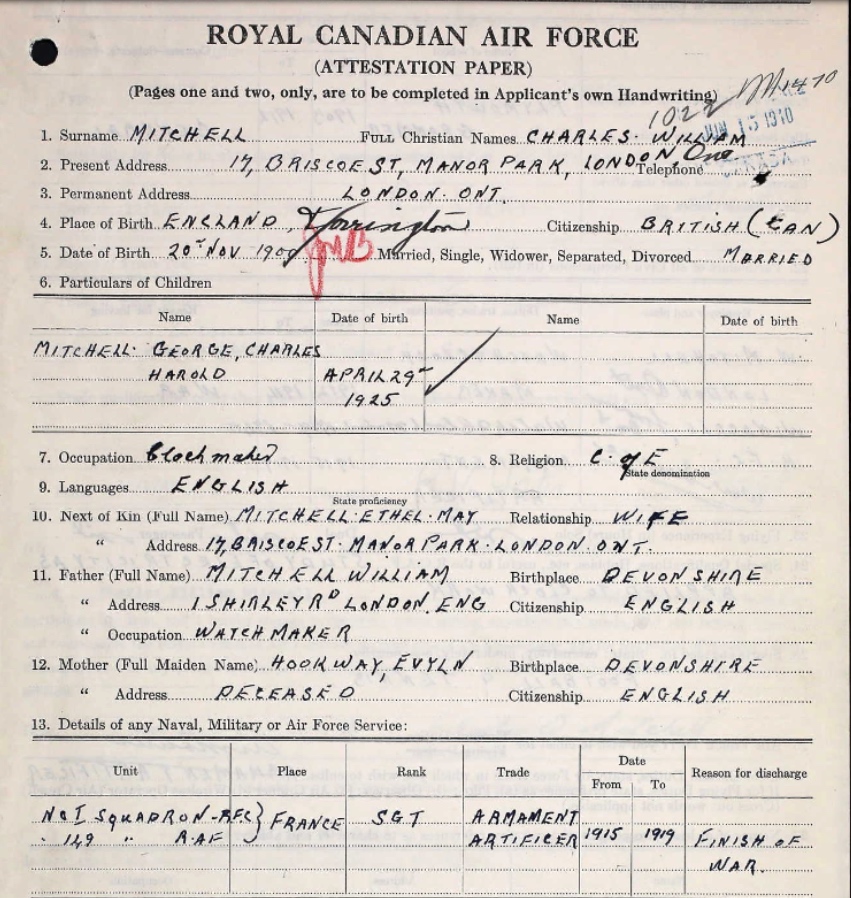 ROYAL CANADIAN AIR FORCE
(ATTESTATION PAPER)
(Pages one and two, only, are to be completed in Applicant's own Handwriting)
1022 M1470
15 1940
1. Surname MITCHELL FULL Christian Names CHARLES. WILLIAM
2. Present Address 17, BRISCOE ST, MANOR PARK, LONDON, Ont. Telephone
3. Permanent Address LONDON. ONT.
4. Place of Birth ENGLAND, Torrington Citizenship BRITISH (CAN)
5. Date of Birth 20T NOV 1900 Married, Single, Widower, Separated, Divorced MARRIED
JMB
6. Particulars of Children
Name Date of birth Name Date of birth
MITCHELL. GEORGE, CHARLES
HAROLD APRIL 29T
1925
7. Occupation Clockmaker 8. Religion C. of E
State denomination
9. Languages ENGLISH
State proficiency
10. Next of Kin (Full Name) MITCHELL. ETHEL. MAY Relationship WIFE
" Address 17, BRISCOE ST. MANOR PARK. LONDON. ONT.
11. Father (Full Name) MITCHELL WILLIAM Birthplace DEVONSHIRE
" Address 1 SHIRLEY RD LONDON, ENG Citizenship ENGLISH
" Occupation WATCH MAKER
12. Mother (Full Maiden Name) HOOKWAY, EVYLN Birthplace DEVONSHIRE
" Address DECEASED Citizenship ENGLISH
13. Details of any Naval, Military or Air Force Service:
Unit Place Rank Trade Date Reason for discharge
From To
No I SQUADRON - RFC } FRANCE SGT ARMAMENT 1915 1919 FINISH OF
149 " RAF ARTIFICER WAR.